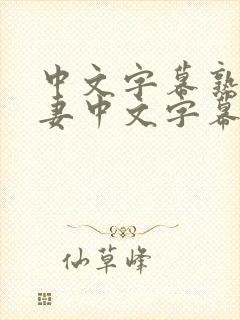 中文字幕熟
妻中文字幕
仙草峰